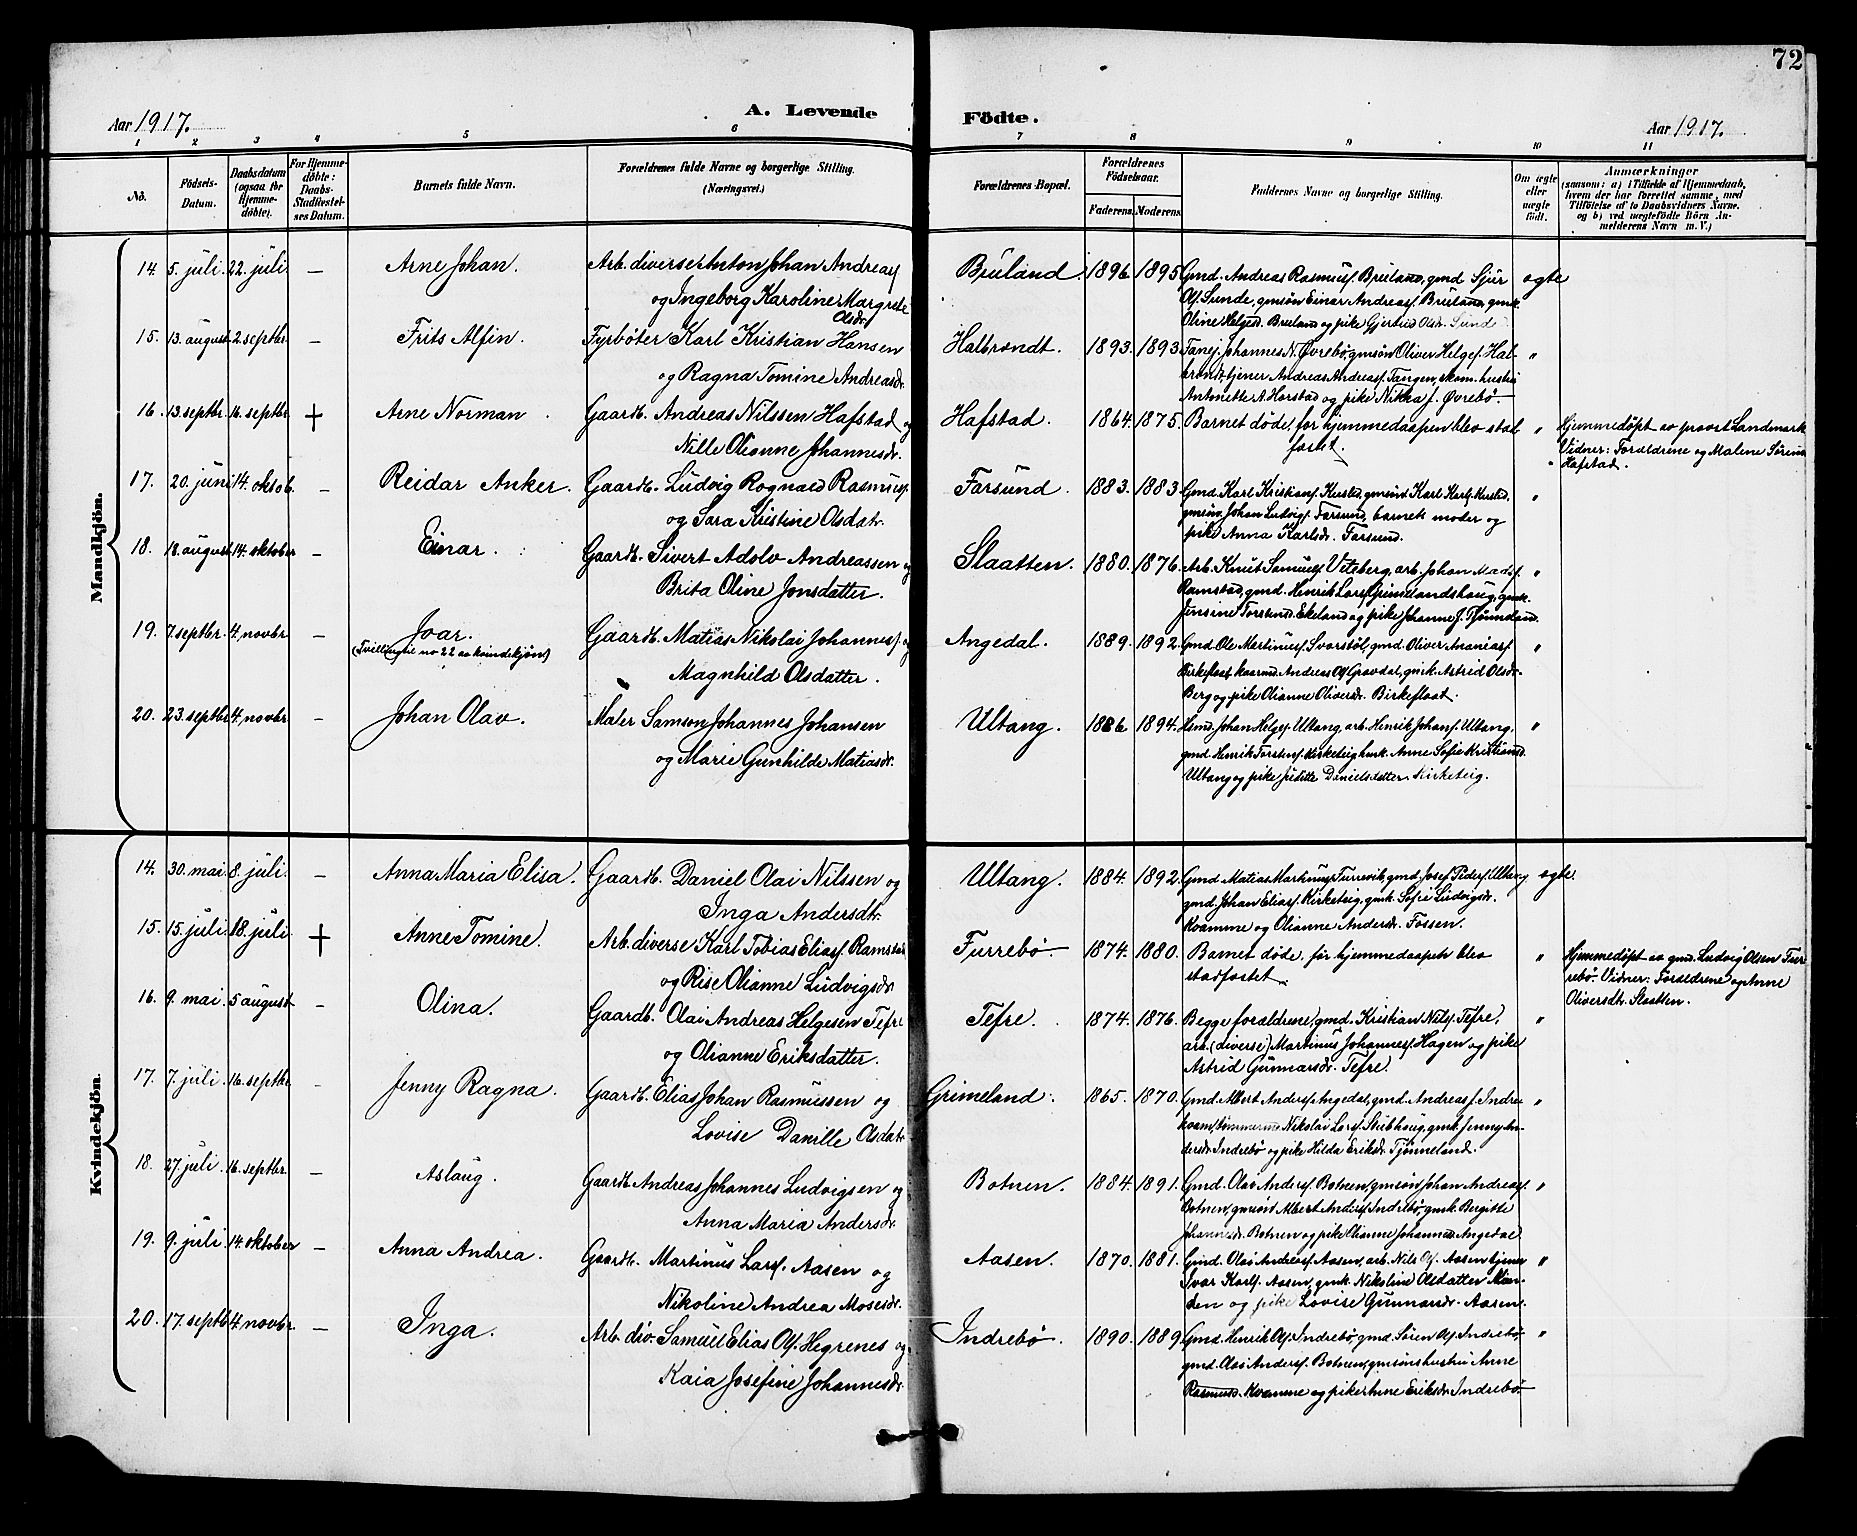 72
Aar 1917.
A. Levende
Födte.
Aar 1917.
1 2 3 4 5 6 7 8 9 10 11
No.
Födsels-
Datum.
Daabsdatum
(ogsaa for
Hjemme-
döbte).
For Hjemme-
döbte:
Daabs-
Stadfæstel-
ses Datum.
Barnets fulde Navn.
Forældrenes fulde Navne og borgerlige Stilling.
(Næringsvei.)
Forældrenes Bopæl.
Forældrenes
Födselsaar.
Faderens. Moderens.
Faddernes Navne og borgerlige Stilling.
Om ægte
eller
uægte
födt.
Anmærkninger
(saasom: a) i Tilfælde af Hjemmedaab,
hvem der har forrettet samme, med
Tilföielse af to Daabsvidners Navne.
og b) ved uægtefödte Börn An-
melderens Navn m. V.)
Mandkjön.
14 5. juli. 22. juli. – Arne Johan. Arb. diverse Anton Johan Andreasf
og Ingeborg Karoline Margrete
Olsdr.
Bruland. 1896. 1895. Gmd. Andreas Rasmusf. Bruland, gmd Sjur
Olf. Sunde, gmsøn Einar Andreasf. Bruland, gmk.
Oline Helgesd. Bruland og pike Gjertrud Olsdr. Sunde.
ægte
15. 13. august. 2. septbr. – Frits Alfin. Fyrbøter Karl Kristian Hansen
og Ragna Tomine Andreasdr.
Halbrendt. 1893. 1893. Johannes N. Øvrebø, gmsøn Oliver Helgef. Hal-
brendt, tjener Andreas Andreasf. Tangen, skom. hustru
Antonette A. Horstad og pike Nikka J. Øvrebø.
"
16. 13. septbr. 16. septbr. + Arne Norman. Gaardb. Andreas Nilssen Hafstad og
Nille Olianne Johannesdr.
Hafstad. 1864. 1875. Barnet døde, før hjemmedaapen blev stad-
fæstet.
" Hjemmedøpt av provst Landmark
Vidner: Forældrene og Malene Sørine
Hafstad.
17. 20. juni 14. oktob. – Reidar Anker. Gaardb. Ludvig Rognald Rasmusf.
og Sara Kristine Olsdatr.
Farsund. 1883. 1883. Gmd. Karl Kristianf. Kusted, gmsøn Karl Karlf. Kusted,
gmsøn Johan Ludvigf. Farsund, barnets moder og
pike Anna Karlsdr. Farsund.
"
18. 18. august 14. oktober – Einar. Gaardb. Sivert Adolv Andreassen og
Brita Oline Jonsdatter.
Slaatten. 1880. 1876. Arb. Knut Samuelf. Viteberg, arb. Johan Madsf.
Ramstad, gmd. Henrik Larsf Grimelandshaug, gmk.
Jensine Torsund. Ekeland og pike Johanne J. Tjønneland.
"
19. 7. septbr. 4. novbr – Joar.
(Tvilling til no 22 av kvindekjøn)
Gaardb. Matias Nikolai Johannesf. og
Magnhild Olsdatter.
Angedal. 1889. 1892. Gmd Ole Martinusf. Svarstøl, gmd. Oliver Ananiasf.
Birkeflaat, Andreas Olf Gravdal, gmk. Astrid Olsdr.
Berg og pike Olianne Oliversdr. Birkeflaat.
"
20. 23. septbr 4. novbr. – Johan Olav. Maler Samson Johannes Johansen
og Marie Gunhilde Matiasdr.
Ultang. 1886. 1894. Husmd. Johan Helgef. Ultang, arb. Henrik Johanf. Ultang,
gmd. Henrik Torstenf. Kirketeig, husk. Anne Sofie Kristiansd.
Ultang og pike Daniels datter Kirketeig.
"
Kvindekjön.
14. 30. mai. 8. juli. – Anna Maria Elisa. Gaardb. Daniel Olai Nilssen og
Inga Andersdtr.
Ultang. 1884. 1892. Gmd. Matias Markusf Furrevik, gmd. Josef Pedersf. Ultang
gmd. Johan Eliasf. Kirketeig, gmk. Sofie Ludvigsdr.
Kvamme og Olianne Andersdr. Fossen.
ægte.
15. 15. juli. 18. juli. + Anne Tomine. Arb. diverse Karl Tobias Eliasf. Ramstad
og Rise Olianne Ludvigsdr
Furrebø. 1874. 1880. Barnet døde, før hjemmedaapen blev
stadfæstet.
" Hjemmedøpt av gmd. Ludvig Olsen Fur-
rebø. Vidner: Forældrene og Anne
Oliversdt. Slaatten.
16. 9. mai. 5 august – Olina. Gaardb. Olai Andreas Helgesen Tefre
og Olianne Eriksdatter.
Tefre. 1874. 1876. Begge forældrene, gmd. Kristian Nilsf. Tefre,
arb. (diverse) Martinus Johannesf. Hagen og pike
Astrid Gunnarsdr. Tefre.
"
17. 7. juli. 16. septbr. – Jenny Ragna. Gaardb. Elias Johan Rasmussen og
Lovise Danille Olsdatr.
Grimeland. 1865. 1870. Gmd. Albert Andersf. Angedal, gmd. Andreas J. Indre-
kvam, tømmerm. Nikolai Larsf. Skibhaug, gmk. Jenny An-
dersdr Indrebø og pike Hilda Eriksdr. Tjønneland.
"
18. 27. juli. 16. septbr. – Aslaug. Gaardb. Andreas Johannes Ludvigsen og
Anna Maria Andersdr.
Botnen. 1884. 1891. Gmd. Olai Andersf. Botnen, gmsøn Johan Andreasf.
Botnen, gmsøn Albert Andersf Indrebø, gmk. Bergitte
Johannesdr. Botnen og pike Olianne Johannesd. Angedal.
"
19. 9. juli. 14. oktober – Anna Andrea. Gaardb. Martinus Larsf. Aasen og
Nikoline Andrea Mosesdr.
Aasen. 1870. 1881. Gmd. Olai Andreasf. Aasen, arb. Nils Olf. Aasen, tjener
Ivar Karlf. Aasen, gmk. Nikoline Olsdatter
og pike Lovise Gunnarsdr. Aasen.
"
20. 17. septb. 4. novbr. – Inga. Arb. div. Samuel Elias Olf. Hegrenes og
Kaia Josefine Johannesdr.
Indrebø. 1890. 1889. Gmd. Henrik Olf. Indrebø, gmd. Søren Olf. Indrebø,
gmd. Olai Andersf. Botnen, gmsøns hustru Anne
Rasmusd. Kvamme og pike Anne Eriksdr Indrebø.
"